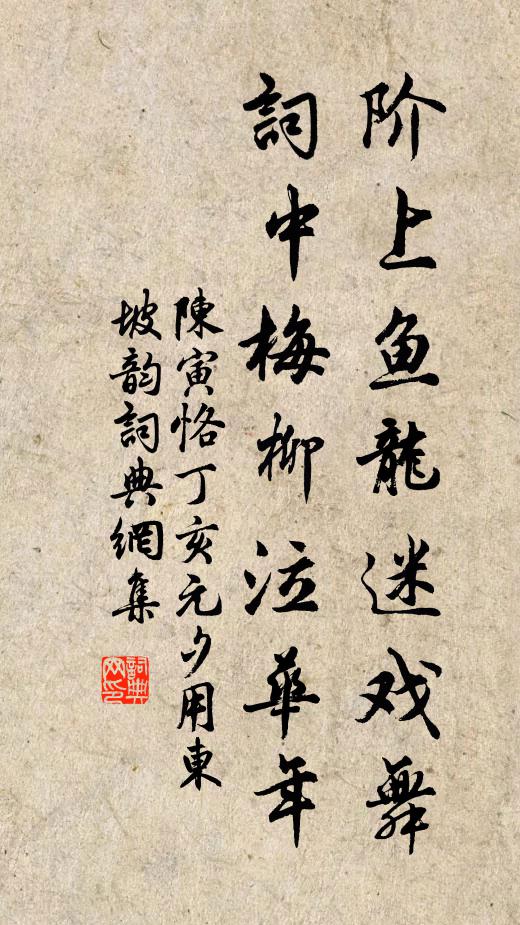 阶上鱼龍迷戏舞
詞中梅柳泣華年
陳寅恪丁亥元夕用東
坡韵詞典網集
詞典網印